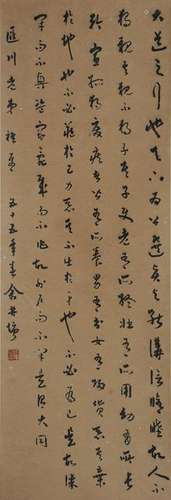 大道之行也天下為公選賢與能講信修睦故人不
獨親其親不獨子其子使老有所終壯有所用幼有所長
矜寡孤獨廢疾者皆有所養男有分女有歸貨惡其棄
於地也不必藏於己力惡其不出於身也不必為己是故謀
閉而不興盜竊亂賊而不作故外戶而不閉是謂大同
匯川老弟雅屬 五十五年春 余井塘